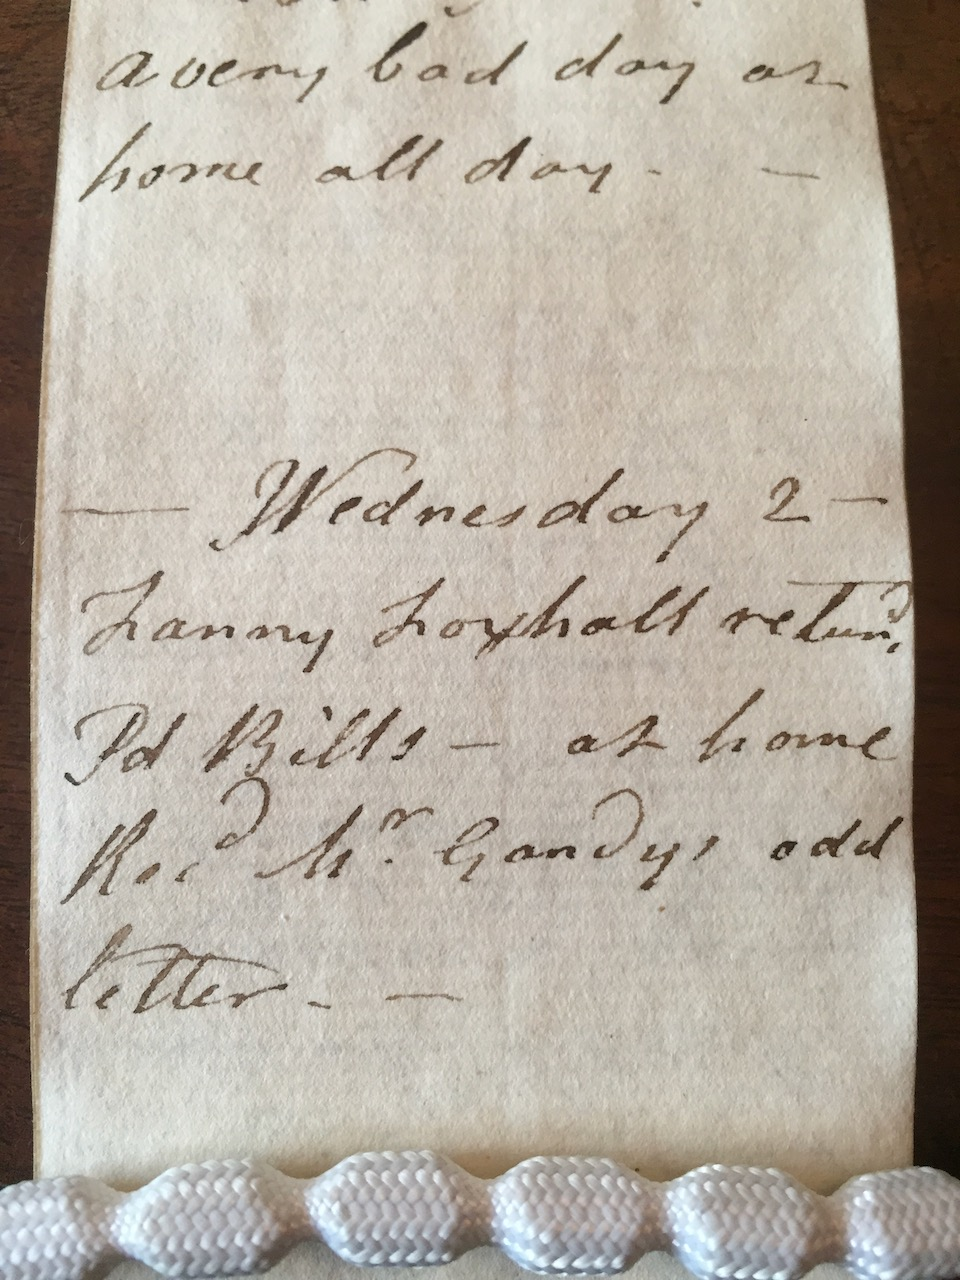 a very bad day at
home all day. —
— Wednesday 2 —
Fanny Foxhall retun'd,
Pd Bills — at home
Rec'd Mr. Gandys odd
letter. —